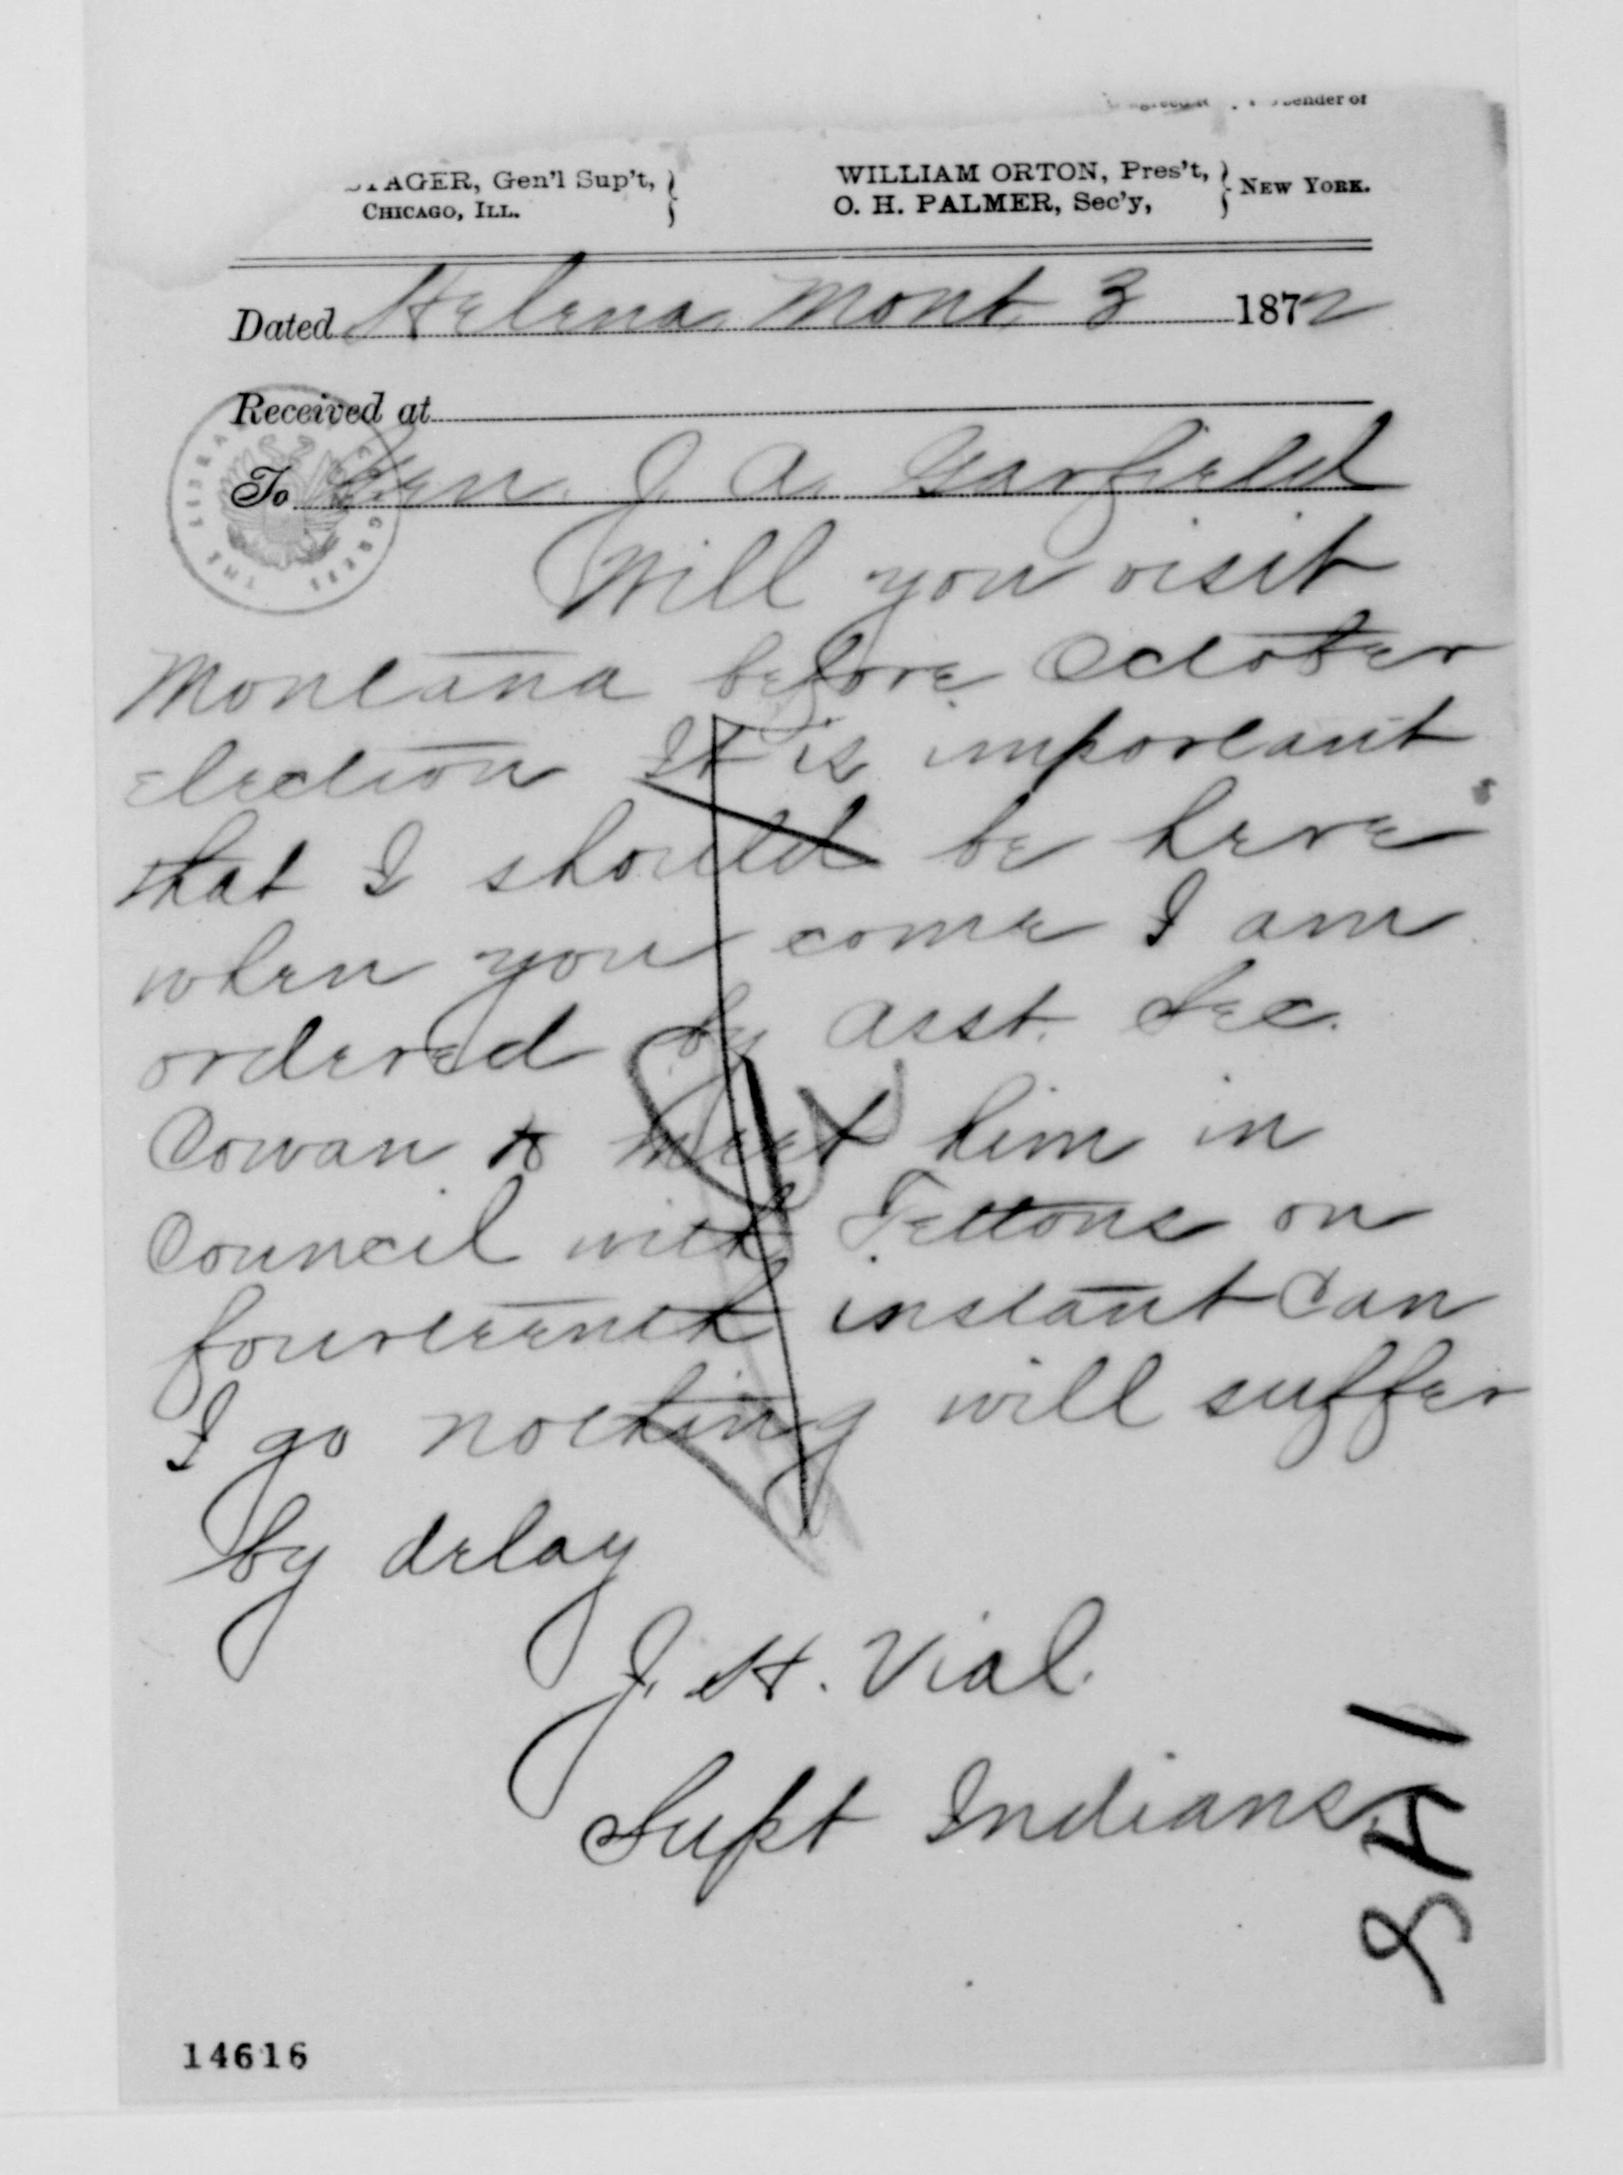 sender of
STAGER, Gen'l Sup't,
CHICAGO, ILL.
WILLIAM ORTON, Pres't,
O. H. PALMER, Sec'y,
NEW YORK.
Dated Helena Mont 3 1872
Received at
To Gen. J. A. Garfield
Will you visit
Montana before October
election It is important
that I should be here
when you come I am
ordered by Asst. Sec.
Cowan to meet him in
Council with Tettons on
fourteenth instant Can
I go nothing will suffer
by delay
J. H. Vial.
Supt Indians
14616